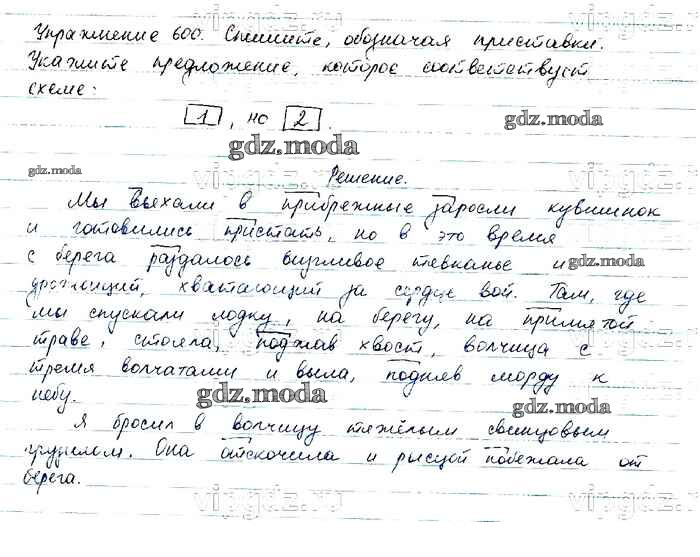 Упражнение 600. Спишите, обозначая приставки.
Укажите предложение, которое соответствует
схеме:
1, но 2.
gdz.moda
gdz.moda
gdz.moda
Решение.
Мы въехали в прибрежные заросли кувшинок
и готовились пристать, но в это время
с берега раздалось визгливое тявканье и
gdz.moda
дрожащий, хватающий за сердце вой. Там, где
мы спускали лодку, на берегу, на примятой
траве, стояла, поджав хвост, волчица с
тремя волчатами и выла, подняв морду к
небу.
gdz.moda
gdz.moda
Я бросил в волчицу тяжёлым свинцовым
грузилом. Она отскочила и рысцой побежала от
берега.
vipgdz.ru